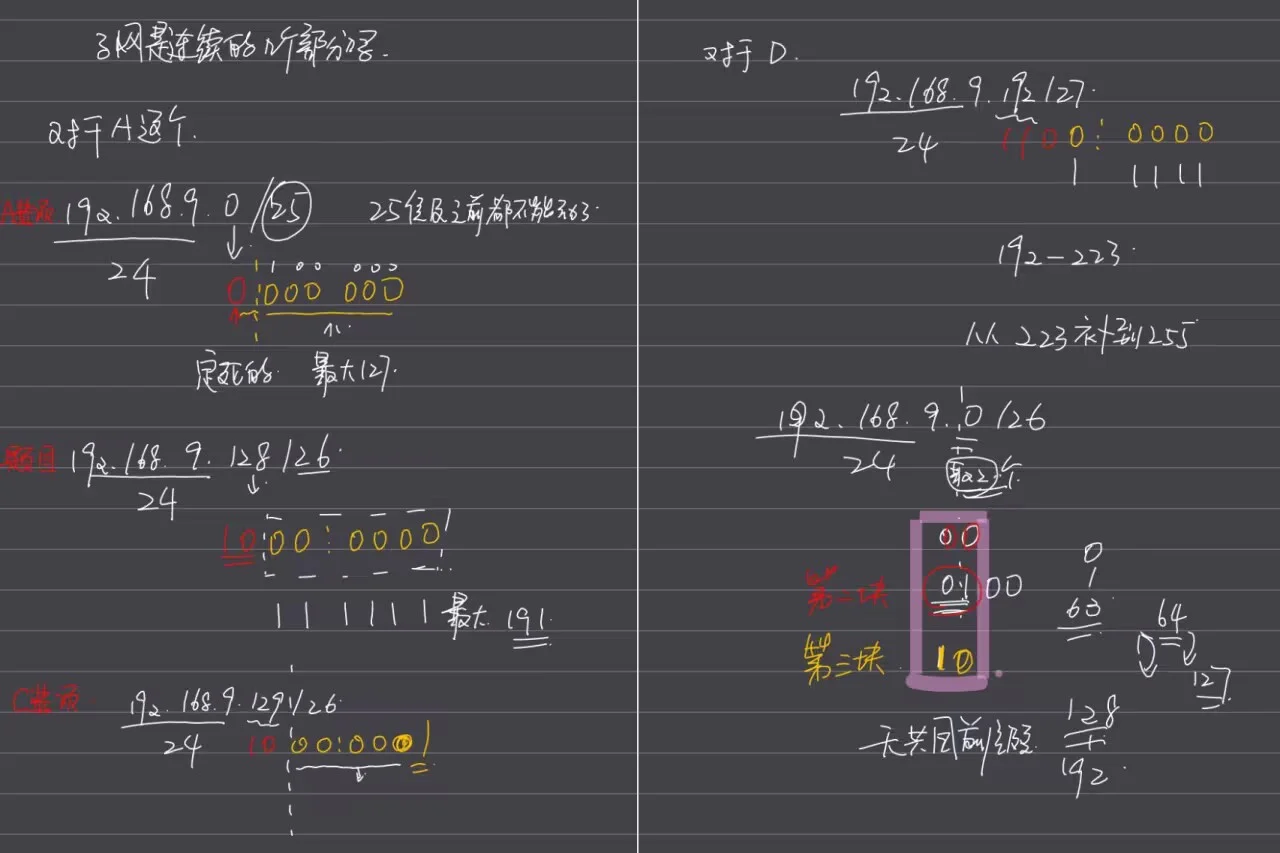 子网是连续的几个部分吗.
对于A这个.
A选项 192.168.9.0/25 25位及之前都不能动了
24
1 00 000
0 000 000
定死的. 最大127.
题目 192.168.9.128/26.
24
10 00 0000
11 1111 最大 191
C选项 192.168.9.129/26
24
10 00:0001
对于D.
192.168.9.192/27.
24 110 0: 0000
1 1111
192-223.
从 223 补到255
192.168.9.0/26
24 取2个
00
第二块 01 00
第三块 10
0
63
64
127
无共同前缀 128
192.